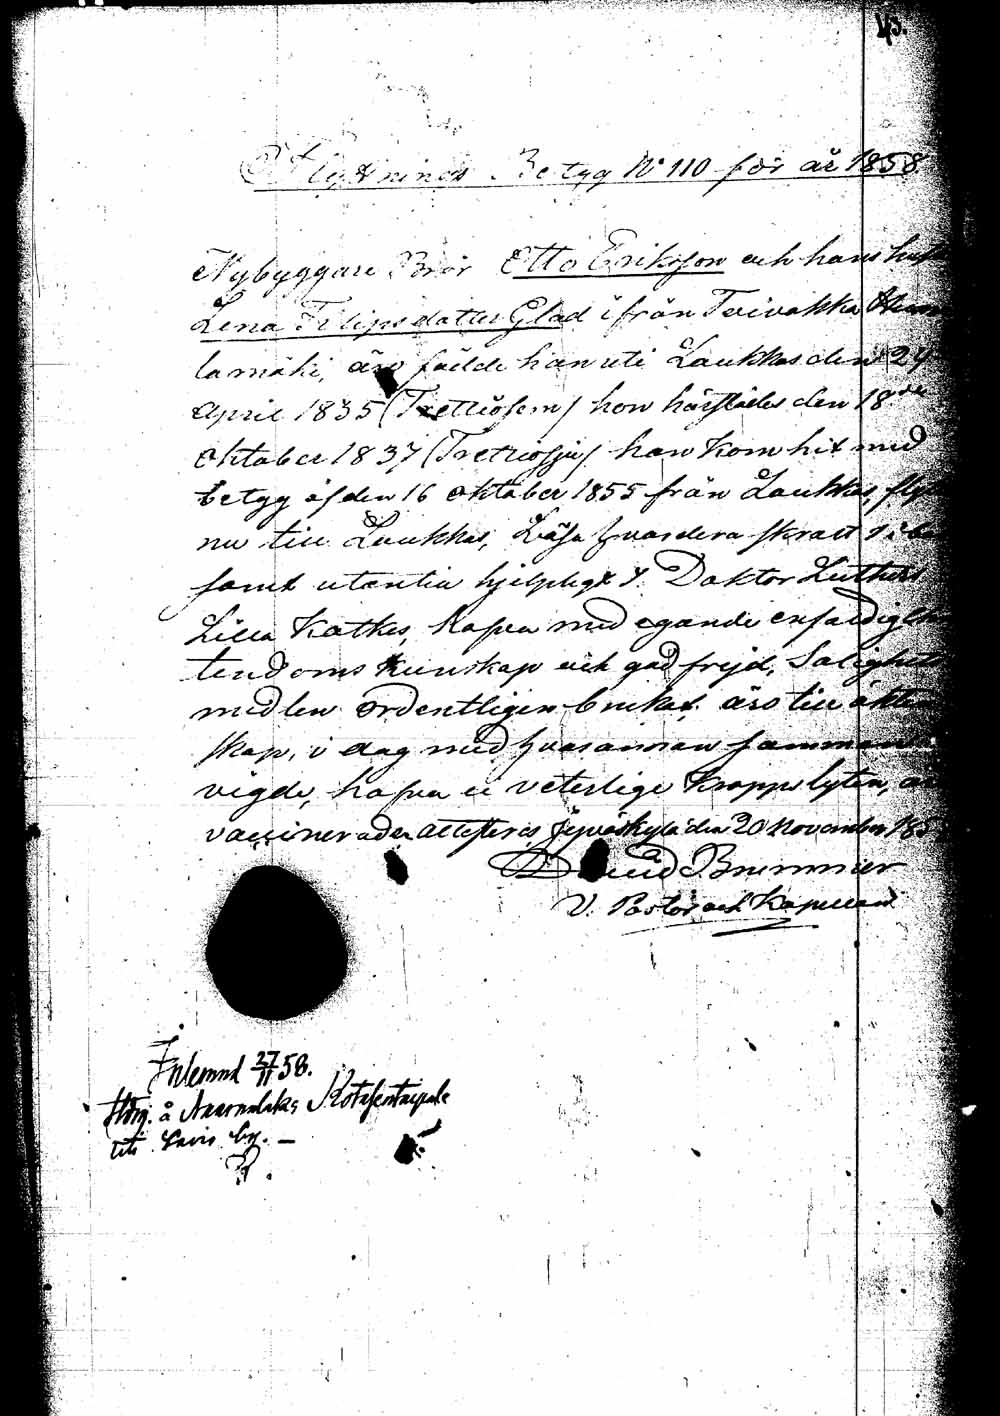 43.
Flyttnings Betyg No 110 för år 1858
Nybyggare Bror Otto Eriksson och hans
Lena Filipsdotter Glad ifrån Toivakka
lamäki, äro födde han uti Laukkas den 24
April 1835 (Trettiofem) hon härstädes den 18de
Oktober 1837 (Trettiosju) han kom hit med
betyg af den 16 Oktober 1855 från Laukkas,
nu till Laukkas, Läsa hvardera skrallt i bo
samt utantill hjelpligt Doktor Luthers
Lilla Katkes, hafva med egande enfaldig
tendoms kunskap och god frejd, Salighets
medlen ordentligen brukat, äro till äkten
skap, i dag med hvarannan samman
vigde, hafva ej veterlige kroppslyten, äro
vaccinerade, attesteras Jyväskylä den 20 November 185
David Brummer
V. Pastor och Kapellan
Inlemnd 27/11 58.
å
uti Savio by. —